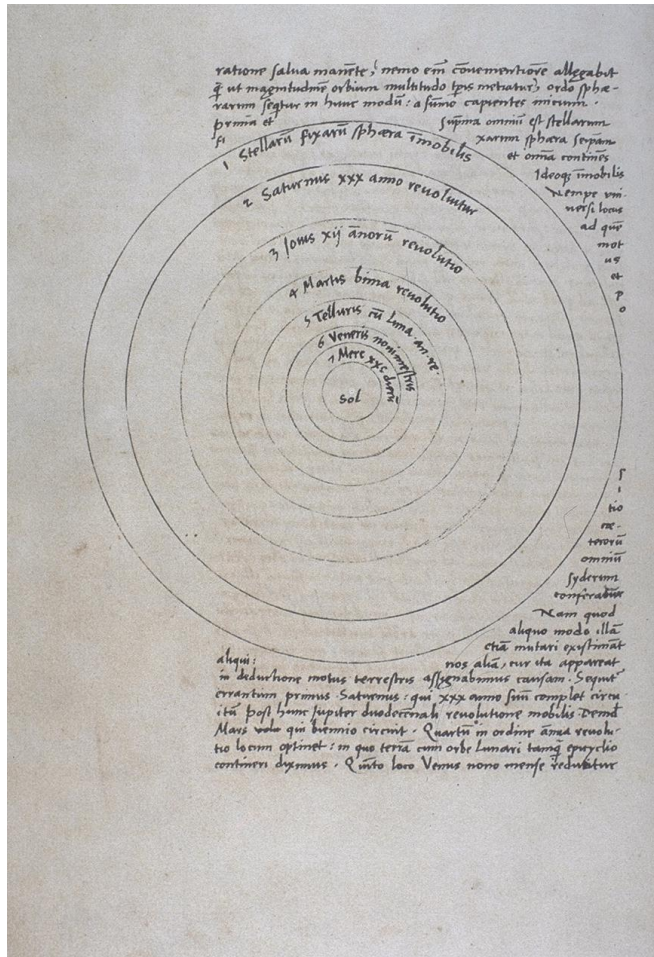 ratione salva manēte, nemo em̄ cōvenientiorē allegabit
q̄ ut magnitudinē orbium multitudo tp̄is metiatur, ordo sphæ-
rarum seq̄tur in hunc modū: a sūmo capientes initium.
prima et Suprema omniū est stellarum
fi xarum sphæra seipsam
et omnia continēs
Ideoq; īmobilis
Nempe uni-
versi locus
ad quē
mot
us
et
p
o
1 Stellarū fixarū sphæra īmobilis
2 Saturnus xxx anno revolvitur
3 Jovis xij annorū revolutio
4 Martis bima revolutio
5 Telluris cū Luna an. re.
6 Veneris nonimestris
7 Merc xxc dierū
Sol
S
i
tio
cæ-
terorū
omniū
syderum
conferatur
Nam quod
aliquo modo illā
etiā mutari existimāt
aliqui: nos aliā, cur ita appareat
in deductione motus terrestris assignabimus causam. Sequit
errantium primus Saturnus: qui xxx anno suū complet circu
itū post hunc Jupiter duodecenali revolutione mobilis Deinde
Mars volo qui biennio circuit. Quartū in ordine annua revolu-
tio locum optinet: in quo terrā cum orbe Lunari tamq̄ epicyclio
contineri diximus. Quinto loco Venus nono mense reducitur